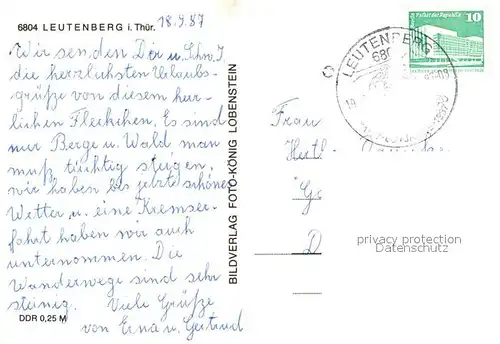 6804 LEUTENBERG i. Thür. 18.9.87
Wir senden Dir u.
die herzlichsten Urlaubs-
grüße von diesem herr-
lichen Fleckchen. Es sind
nur Berge u. Wald man
muß tüchtig steigen,
wir haben bis jetzt schönes
Wetter u. eine Kremser-
fahrt haben wir auch
unternommen. Die
Wanderwege sind sehr
steinig. Viele Grüße
von Erna u. Gertrud
DDR 0,25 M
BILDVERLAG FOTO-KÖNIG LOBENSTEIN
LEUTENBERG
680
Palast der Republik
10
Frau
privacy protection
Datenschutz